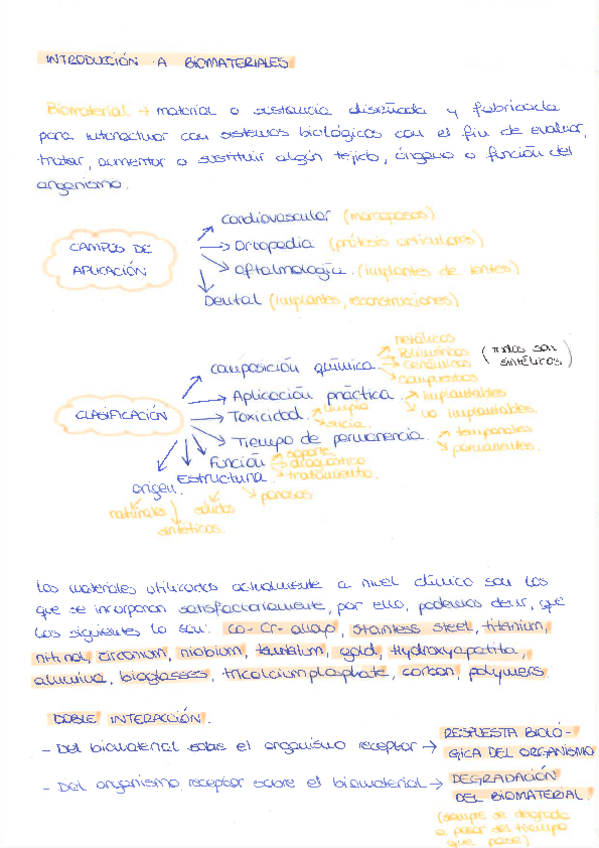 INTRODUCCIÓN A BIOMATERIALES
Biomaterial → material o sustancia diseñada y fabricada
para interactuar con sistemas biológicos con el fin de evaluar,
tratar, aumentar o sustituir algún tejido, órgano o función del
organismo.
CAMPOS DE
APLICACIÓN
Cardiovascular (marcapasos)
Ortopedia (prótesis articulares)
Oftalmología. (implantes de lentes)
Dental (implantes, reconstrucciones)
CLASIFICACIÓN
composición química.
metálicos
Poliméricos
cerámicos
compuestos
(todos son
sintéticos)
Aplicación práctica.
implantables
no implantables.
Toxicidad.
Tiempo de permanencia.
temporales
permanentes.
Función
soporte
diagnóstico
tratamiento.
Estructura.
porosos
sólidos
origen.
naturales
sintéticos.
Los materiales utilizados actualmente a nivel clínico son los
que se incorporan satisfactoriamente, por ello, podemos decir, que
los siguientes lo son: Co-Cr-alloy, stainless steel, titanium,
nitinol, zirconium, niobium, tantalum, gold, hydroxyapatita,
alumina, bioglasses, tricalciumphosphate, carbon, polymers.
DOBLE INTERACCIÓN.
- Del biomaterial sobre el organismo receptor → RESPUESTA BIOLÓ-
GICA DEL ORGANISMO
- Del organismo receptor sobre el biomaterial → DEGRADACIÓN
DEL BIOMATERIAL.
(siempre se degrada
a pesar del tiempo
que pase)